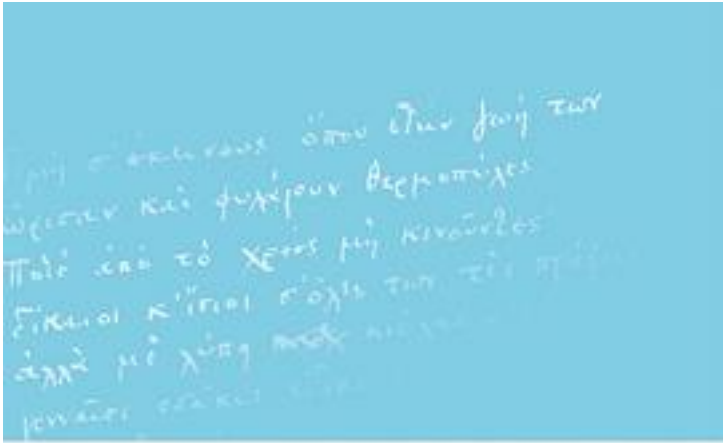 σ' ἐκείνους ὅπου στὴν ζωή των
ὥρισαν καὶ φυλάγουν Θερμοπύλες
Ποτὲ ἀπὸ τὸ χρέος μὴ κινοῦντες
δίκαιοι κ' ἴσιοι σ' ὅλες των τὲς
ἀλλὰ μὲ λύπη
γενναῖοι ὁσάκις